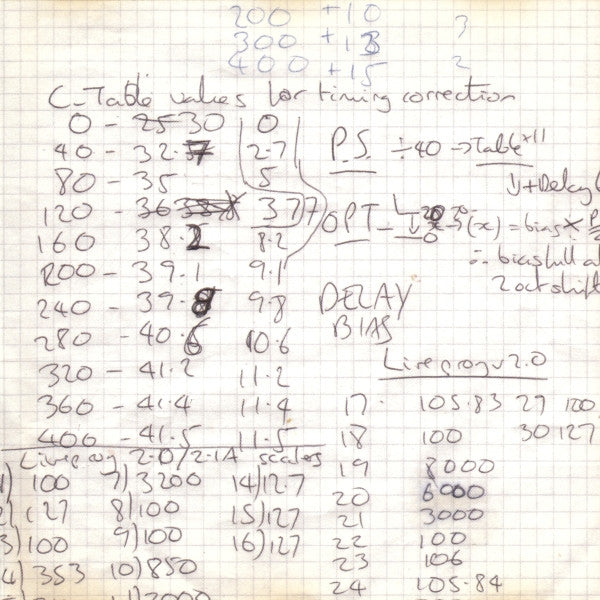 200 +10
300 +13 3
400 +15 2
C-Table values for timing correction
0 - 25 30 0
40 - 32.7 2.7 P.S. ÷40 → Table +11
80 - 35 5 + Delay
120 - 36 37 7
160 38.2 8.2 OPT - (x) = bias x
200 - 39.1 9.1 ∴ bias full
240 - 39.8 9.8 DELAY 2 oct shift
280 - 40.6 10.6 BIAS
320 - 41.2 11.2 v2.0
360 - 41.4 11.4 17 105.83 27 100
400 - 41.5 11.5 18 100 30 127
2.0/2.1A scales 19 8000
1) 100 7) 3200 14) 12.7 20 6000
2) 127 8) 100 15) 127 21 3000
3) 100 9) 100 16) 127 22 100
4) 353 10) 850 23 106
11) 2000 24 105.84